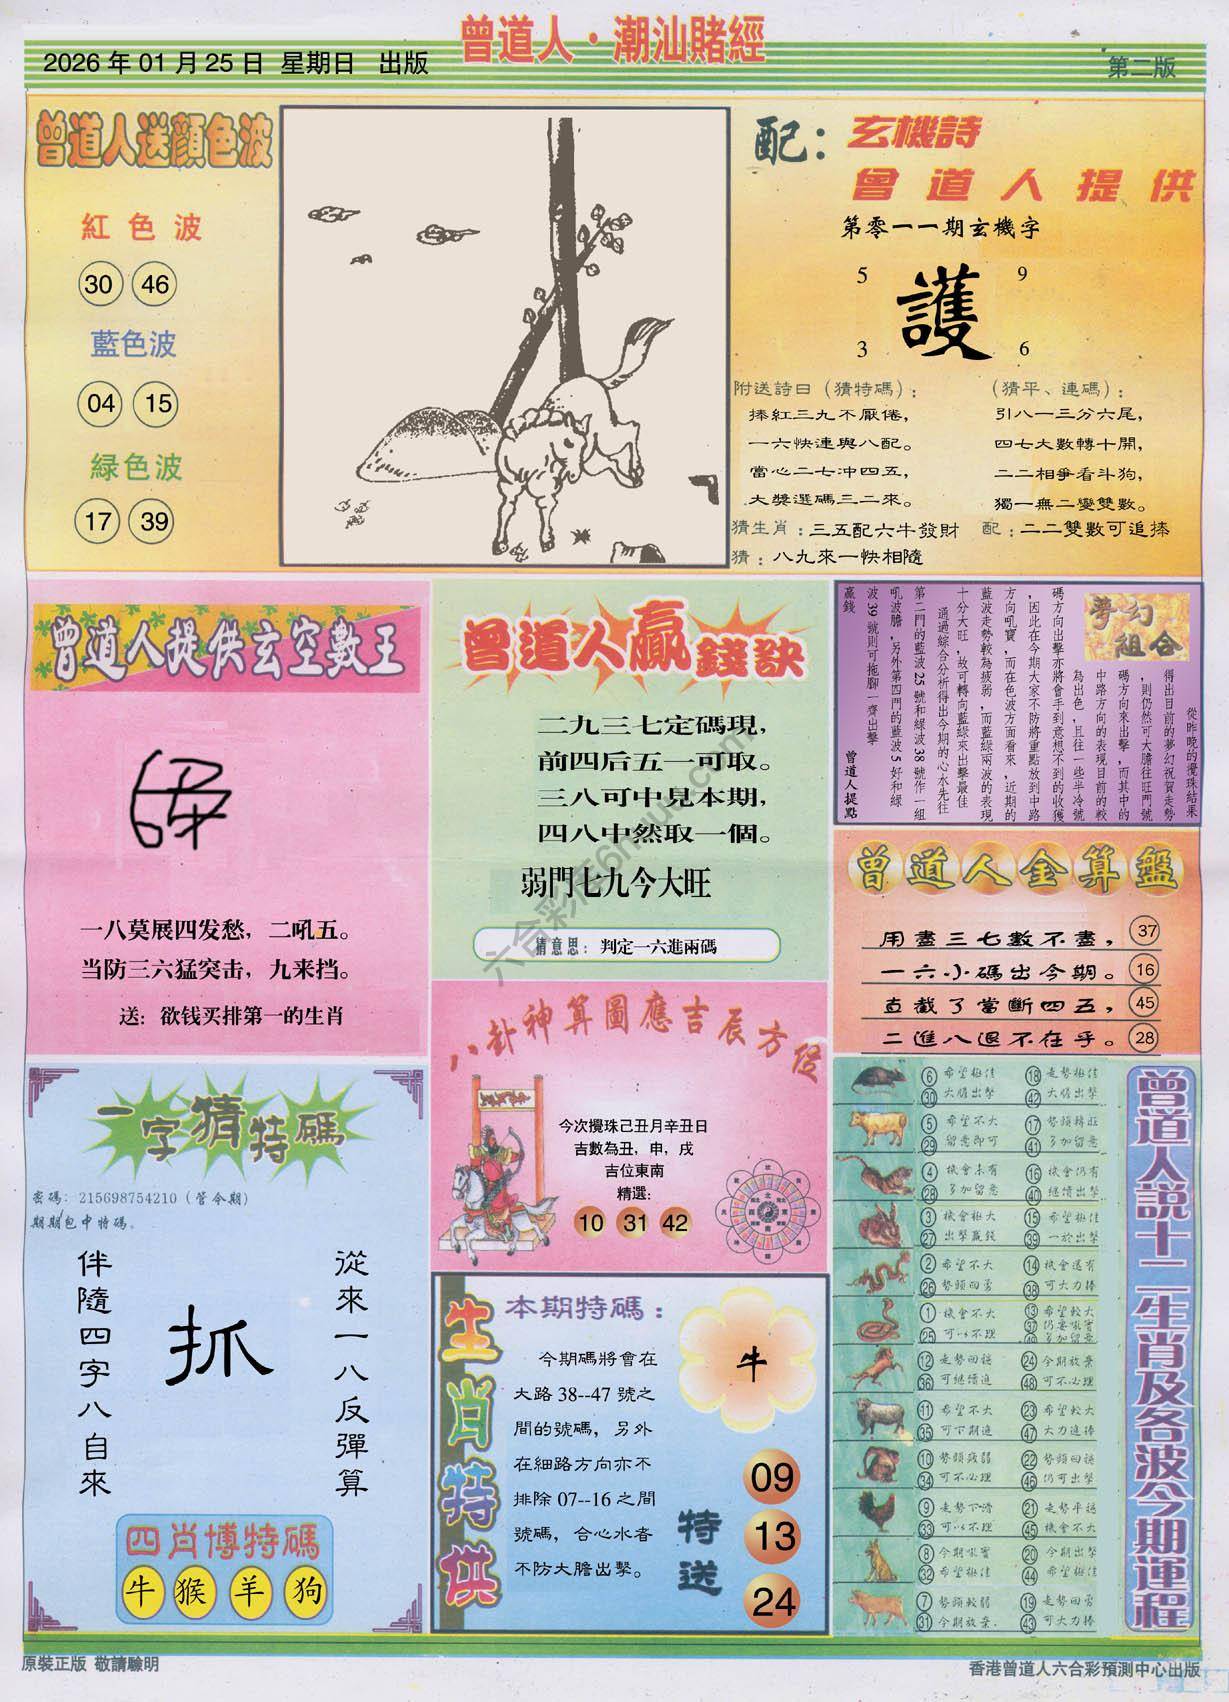 曾道人·潮汕賭經
2026年01月25日 星期日 出版
第二版
曾道人送顔色波
紅色波
30 46
藍色波
04 15
緑色波
17 39
配：
玄機詩
曾道人提供
第零一一期玄機字
5 9
護
3 6
附送詩曰（猜特碼）：
捧紅三九不厭倦，
一六快連與八配。
當心二七冲四五，
大獎選碼三二來。
（猜平、連碼）：
引八一三分六尾，
四七大數轉十開，
二二相爭看斗狗，
獨一無二變雙數。
猜生肖：三五配六牛發財
配：二二雙數可追捧
猜：八九來一快相隨
曾道人提供玄空數王
一八莫展四发愁，二吼五。
当防三六猛突击，九来挡。
送：欲钱买排第一的生肖
曾道人贏錢訣
二九三七定碼現，
前四后五一可取。
三八可中見本期，
四八中然取一個。
弱門七九今大旺
猜意思：判定一六進兩碼
夢幻組合
從昨晚的攪珠結果
得出目前的夢幻祝賀走勢
，則仍然可大膽往旺門號
碼方向來出擊，而其中的
中路方向的表現目前的較
為出色，且往一些半冷號
碼方向出擊亦將會手到意想不到的收獲
，因此在今期大家不防將重點放到中路
方向吼寶，而在色波方面看來，近期的
藍波走勢較為疲弱，而藍緑兩波的表現
十分大旺，故可轉向藍緑來出擊最佳
通過綜合分析得出今期的心水先往
第二門的藍波25號和緑波38號作一組
吼波膽，另外第四門的藍波5好和緑
波39號則可拖腳一齊出擊
贏錢
曾道人提點
曾道人金算盤
用盡三七數不盡， 37
一六小碼出今期。 16
直截了當斷四五， 45
二進八退不在乎。 28
八卦神算圖應吉辰方位
今次攪珠己丑月辛丑日
吉數為丑，申，戌
吉位東南
精選:
10 31 42
一字猜特碼
密碼：215698754210（管令期）
期期包中特碼。
從來一八反彈算
抓
伴隨四字八自來
四肖博特碼
牛 猴 羊 狗
生肖特供
本期特碼：
今期碼將會在
大路38--47號之
間的號碼，另外
在細路方向亦不
排除07--16之間
號碼，合心水者
不防大膽出擊。
牛
特送
09
13
24
曾道人説十二生肖及各波今期運程
6 希望極佳 18 走勢極佳
30 大膽出擊 42 大膽出擊
5 希望不大 17 勢頭轉旺
29 留意即可 41 多加留意
4 機會未有 16 機會仍有
28 多加留意 40 繼續出擊
3 機會極大 15 希望極佳
27 出擊贏錢 39 一於出擊
2 希望不大 14 機會還有
26 勢頭回勇 38 可大力捧
1 機會不大 13 希望較大
25 可以不理 37 仍要吼實
49 多加留意
12 走勢回穩 24 今期放棄
36 可繼續追 48 可不必理
11 希望不大 23 希望較大
35 可下期追 47 大力追捧
10 勢頭疲弱 22 勢頭回穩
34 可不必理 46 仍可出擊
9 走勢下滑 21 走勢平穩
33 可以不理 45 機會不大
8 今期吼實 20 今期出擊
32 希望極佳 44 希望極佳
7 勢頭較弱 19 走勢回勇
31 今期放棄. 43 可大力捧
原裝正版 敬請驗明
香港曾道人六合彩預測中心出版